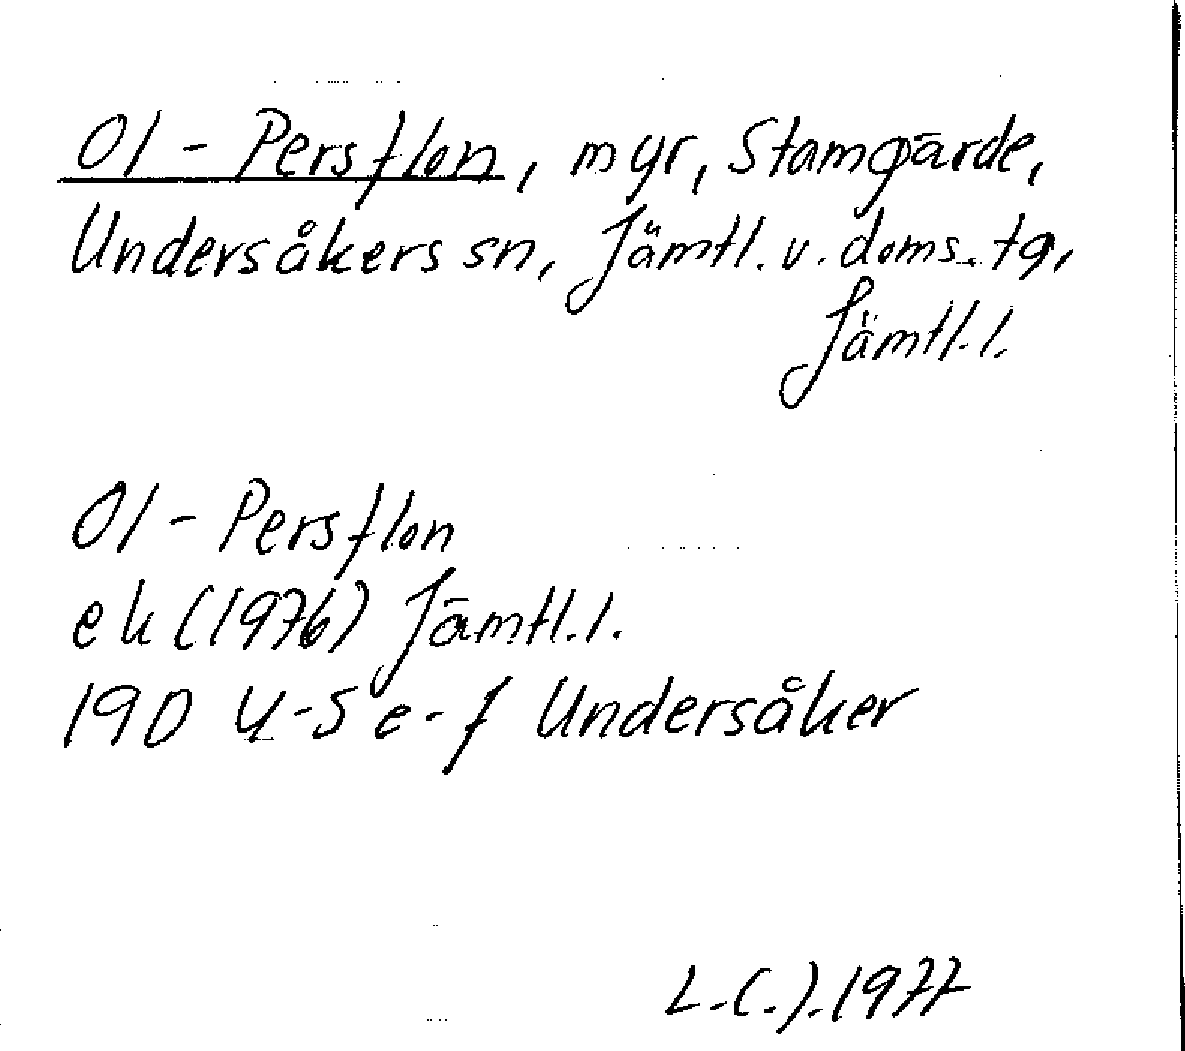 Ol-Persflon, myr, Stamgärde,
Undersåkers sn, Jämtl. v. doms. tg,
Jämtl. l.
Ol-Persflon
ek (1976) Jämtl. l.
19D 4-5 e-f Undersåker
L.C.J. 1977